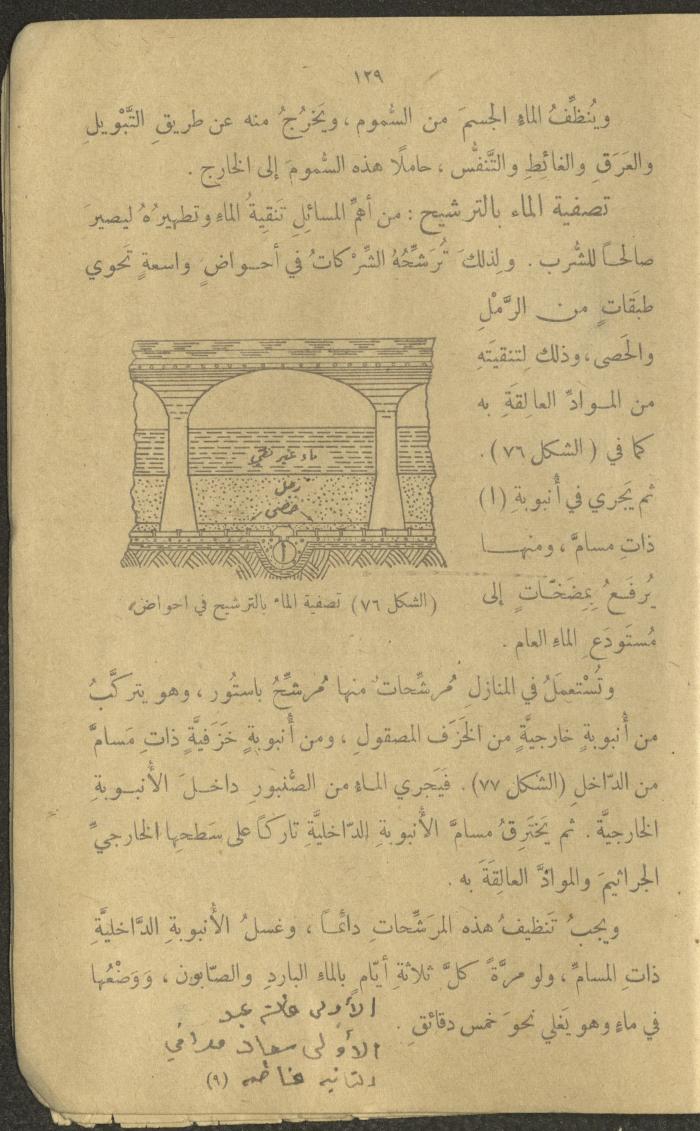 ١٢٩
ويُنظِّفُ الماءُ الجسمَ من السُّموم ، ويَخرُجُ منه عن طريقِ التَّبْويلِ
والعَرَقِ والغائِطِ والتَّنفُّس ، حاملًا هذه السُّمومَ إلى الخارج .
تصفية الماء بالترشيح : من أهمِّ المسائلِ تَنقِيةُ الماءِ وتطهيرُهُ ليصيرَ
صالحاً للشُّرب . ولِذلكَ تُرَشِّحُهُ الشِّرْكاتُ في أحواضٍ واسعةٍ تَحوي
طبَقاتٍ من الرَّمْلِ
والحَصى ، وذلك لِتنقيَتهِ
من الموادِّ العالِقَةِ به
كما في ( الشكل ٧٦ ) .
ثم يَجري في أُنبوبةِ (ا)
ذاتِ مسامَّ ، ومنها
يُرفَعُ بِمِضَخّاتٍ إلى
مُستَودَعِ الماءِ العام .
ماء غير نقي
رمل
حصى
ا
(الشكل ٧٦) تصفية الماء بالترشيح في احواض
وتُسْتعمَلُ في المنازلِ مُرشِّحاتٌ منها مُرشِّحُ باستُور ، وهو يتركَّبُ
من أُنبوبةٍ خارجيَّةٍ من الخَزَف المصقولِ ، ومن أُنبوبةٍ خَزَفيَّةٍ ذاتِ مَسامَّ
من الدّاخلِ (الشكل ٧٧) . فيَجري الماءُ من الصُّنبورِ داخلَ الأنبوبةِ
الخارجيَّة . ثم يَخترِقُ مسامَّ الأُنبوبةِ الدّاخليَّةِ تاركاً على سَطحِها الخارجيِّ
الجراثيمَ والموادَّ العالِقَةَ به .
ويجبُ تَنظيفُ هذه المرَشِّحاتِ دائمًا ، وغسلُ الأُنبوبةِ الدَّاخليَّةِ
ذاتِ المسامِّ ، ولو مرَّةً كلَّ ثلاثةِ أيّام بالماءِ الباردِ والصّابون ، وَوَضْعُها
في ماءٍ وهو يَغلي نحوَ خمس دقائق .
الأولى عبد
الأولى سعاد
الثانيه فاطمه (٩)